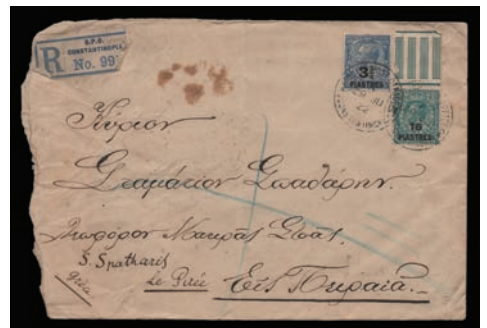 B.P.O.
CONSTANTINOPLE
R No. 99
3¾
PIASTRES
18
PIASTRES
Κύριον
Σταμάτιον Σπαθάρην.
Μακρᾶς Στοᾶς.
S. Spatharis
Le Pirée
Εἰς Πειραιᾶ.